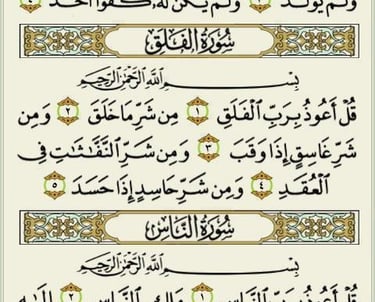 وَلَمْ يُولَدْ ٣ وَلَمْ يَكُن لَّهُۥ كُفُوًا أَحَدٌۢ ٤
سُورَةُ الْفَلَقِ
بِسْمِ اللَّهِ الرَّحْمَٰنِ الرَّحِيمِ
قُلْ أَعُوذُ بِرَبِّ الْفَلَقِ ١ مِن شَرِّ مَا خَلَقَ ٢ وَمِن
شَرِّ غَاسِقٍ إِذَا وَقَبَ ٣ وَمِن شَرِّ النَّفَّٰثَٰتِ فِى
الْعُقَدِ ٤ وَمِن شَرِّ حَاسِدٍ إِذَا حَسَدَ ٥
سُورَةُ النَّاسِ
بِسْمِ اللَّهِ الرَّحْمَٰنِ الرَّحِيمِ
قُلْ أَعُوذُ بِرَبِّ النَّاسِ ١ مَلِكِ النَّاسِ ٢ إِلَٰهِ